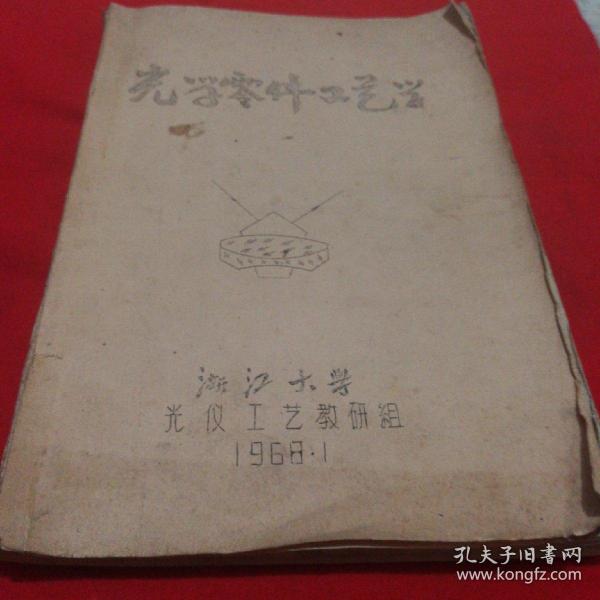 光学零件工艺学
浙江大学
光仪工艺教研组
1968.1
孔夫子旧书网
www.kongfz.com